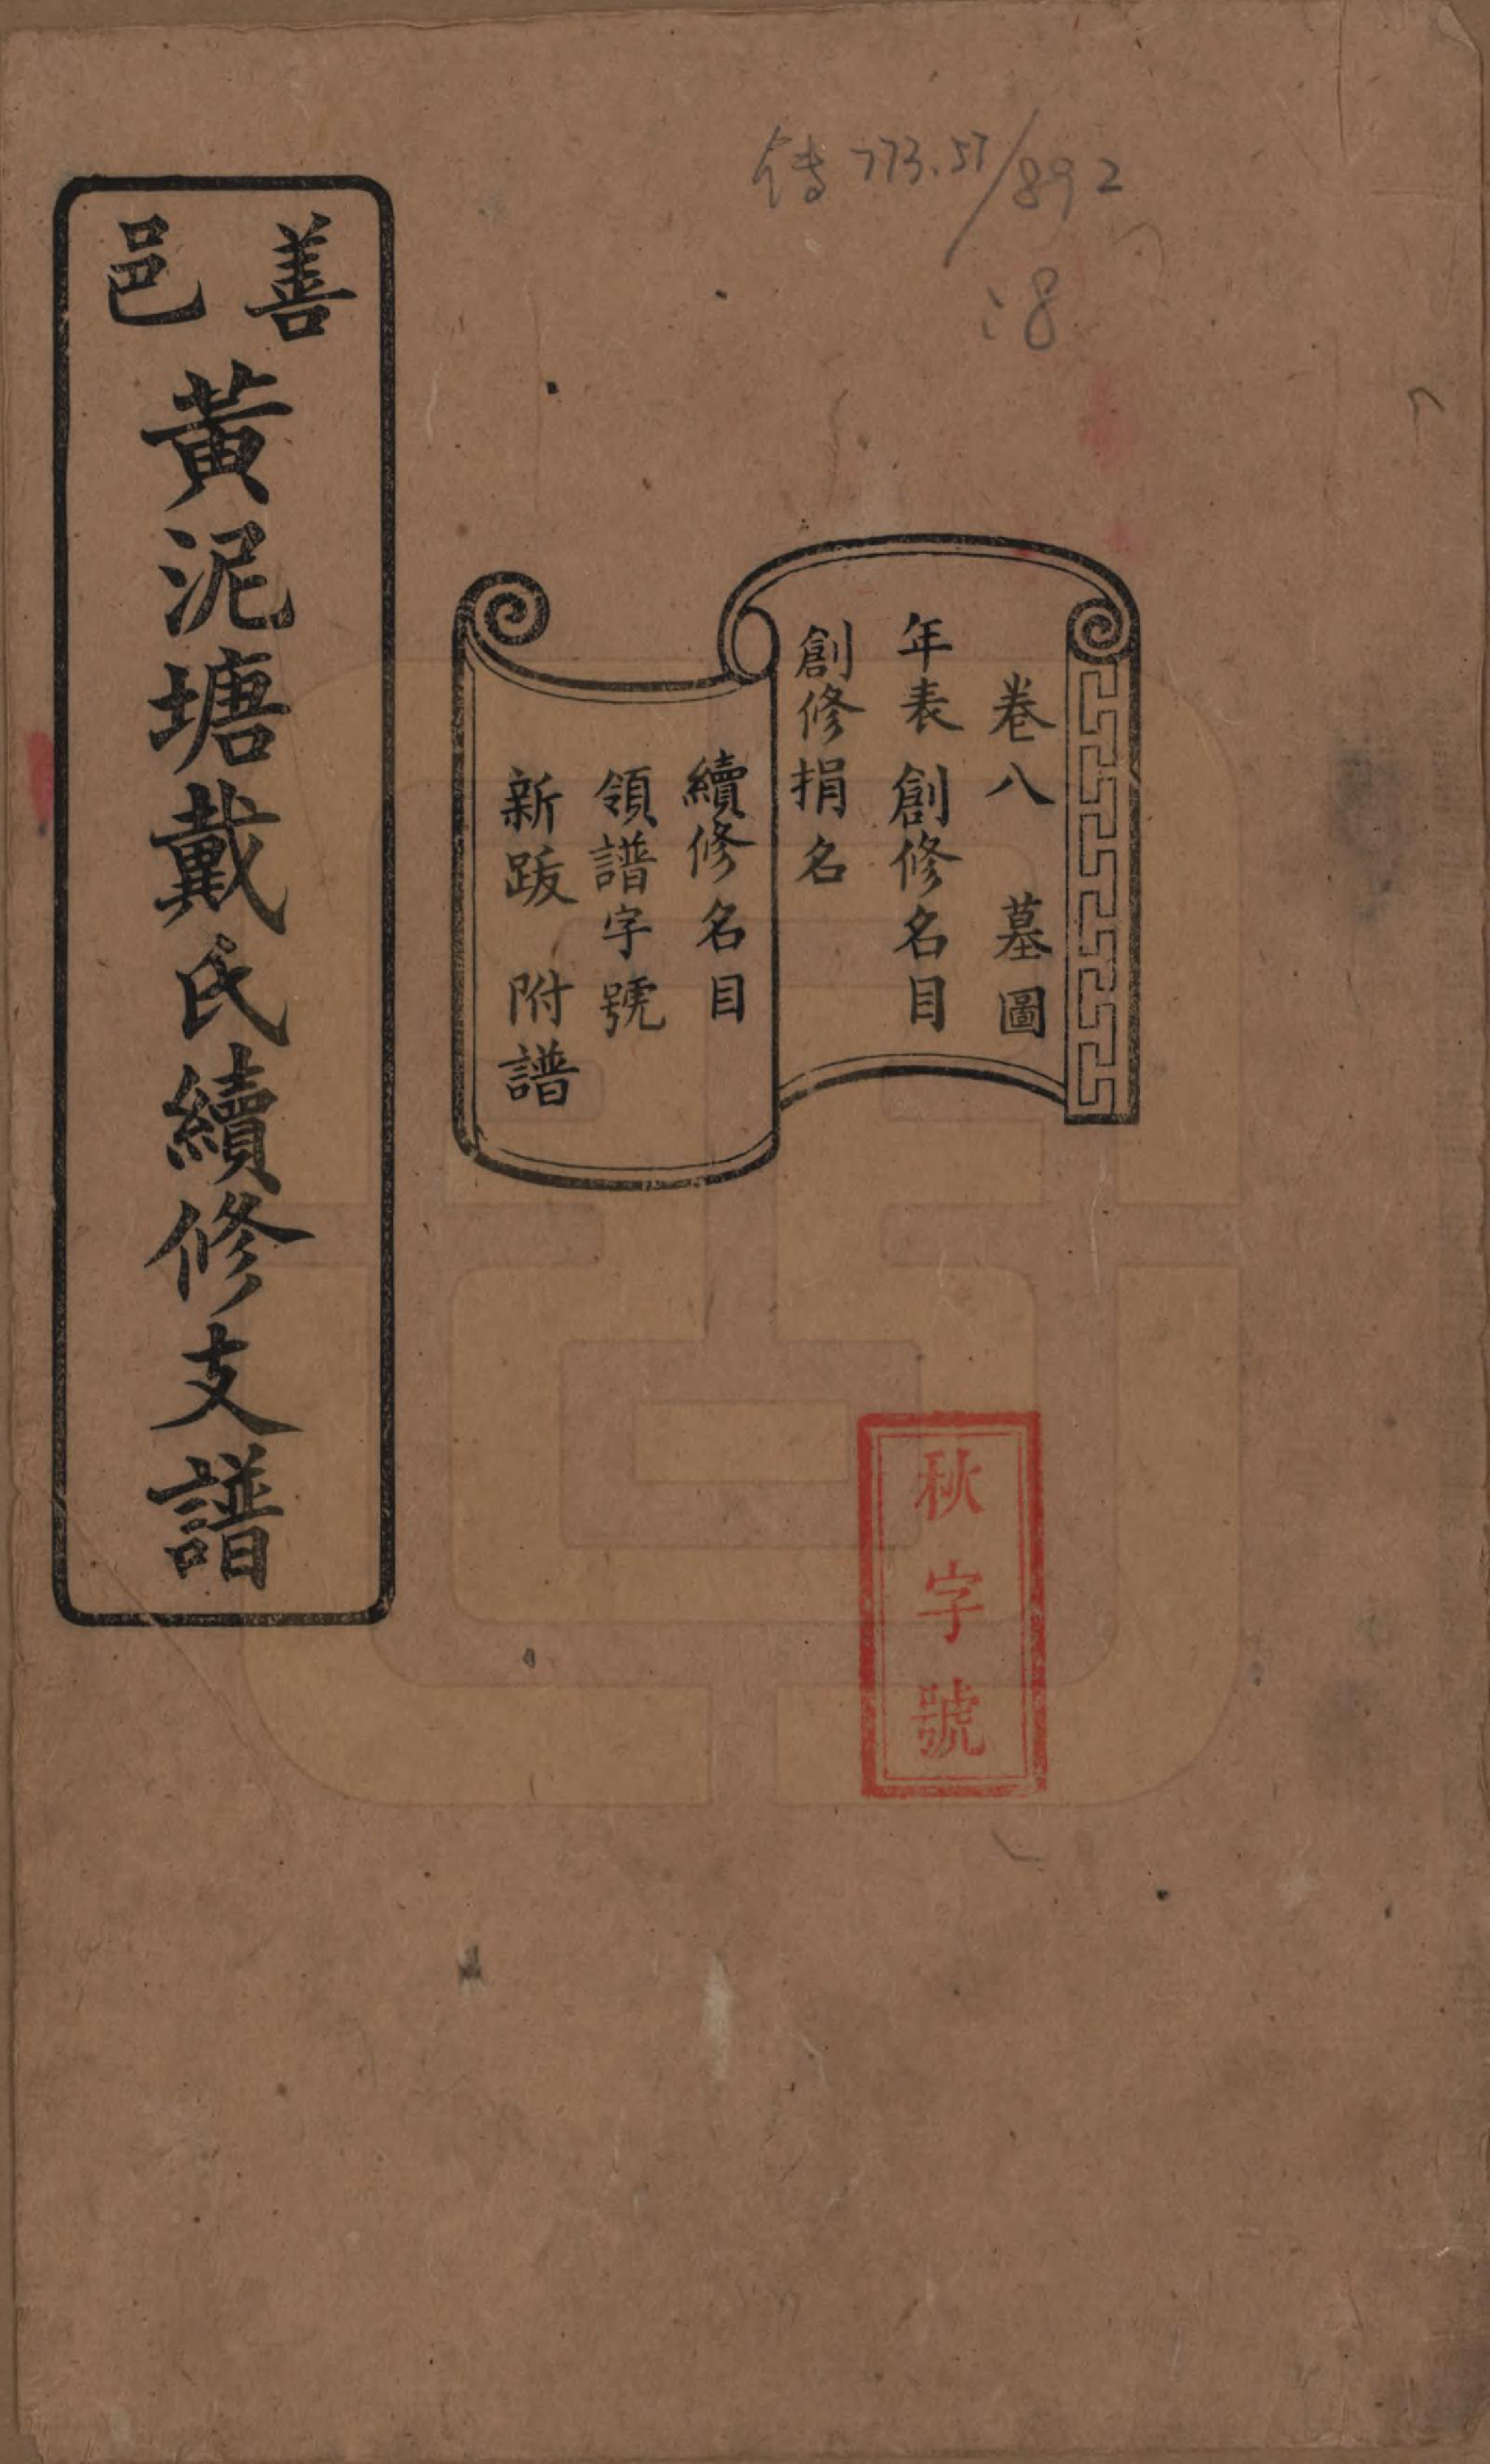 傳773.57/892
:8
卷八 墓圖
年表 創修名目
創修捐名
續修名目
領譜字號
新跋 附譜
秋字號
善邑
黃泥塘戴氏續修支譜